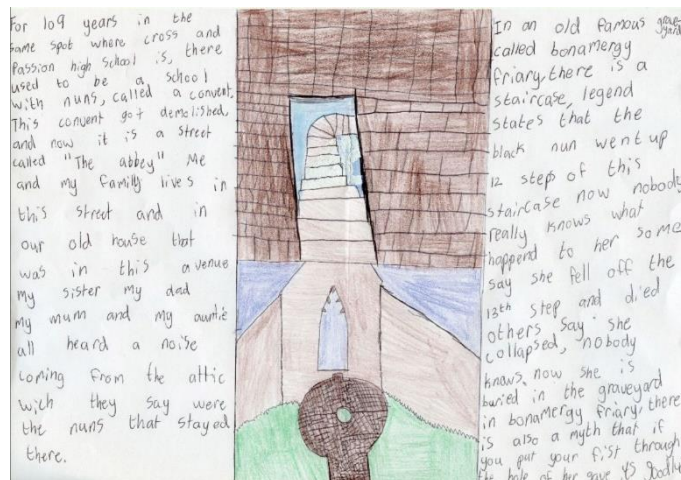 For 109 years in the
same spot where cross and
Passion high school is, there
used to be a school
with nuns, called a convent.
This convent got demolished,
and now it is a street
called "The abbey" Me
and my family lives in
this street and in
our old house that
was in this avenue
my sister my dad
my mum and my auntie
all heard a noise
coming from the attic
wich they say were
the nuns that stayed
there.
In an old famous grave-
yard
called bonamergy
friary, there is a
staircase, legend
states that the
black nun went up
12 step of this
staircase now nobody
really knows what
happend to her some
say she fell off the
13th step and died
others say she
collapsed, nobody
knows. now she is
buried in the graveyard
in bonamergy friary, there
is also a myth that if
you put your first through
the hole of her gave its